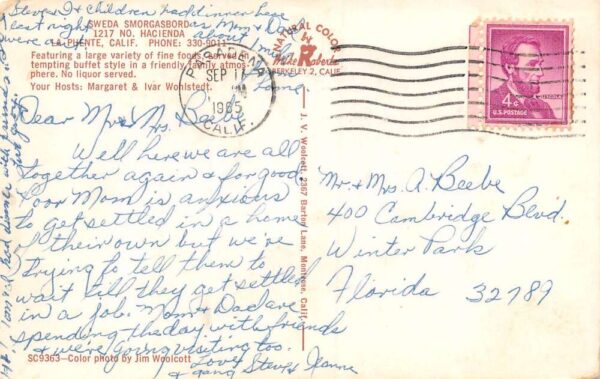 Steve, I & children had dinner here
last night, as Mom & Dad
were
about 1 mile
SWEDA SMORGASBORD
1217 NO. HACIENDA
LA PUENTE, CALIF. PHONE: 330-9011
Featuring a large variety of fine foods, served in
tempting buffet style in a friendly family atmos-
phere. No liquor served.
Your Hosts: Margaret & Ivar Wohlstedt.
NATURAL COLOR
Mike Roberts
BERKELEY 2, CALIF.
PASADENA
SEP 11
1965
CALIF.
LINCOLN
4¢
U.S. POSTAGE
Dear Mr. & Mrs. Beebe
Well here we are all
together again & for good.
Poor Mom is anxious
to get settled in a home
of their own but we're
trying to tell them to
wait till they get settled
in a job. Mom & Dad are
spending the day with friends
& we're going visiting too.
Love,
Steve & Jeanne
& gang
SC9363—Color photo by Jim Woolcott
J. V. Woolcott, 2367 Barton Lane, Montrose, Calif.
Mr. & Mrs. A. Beebe
400 Cambridge Blvd.
Winter Park
Florida 32789